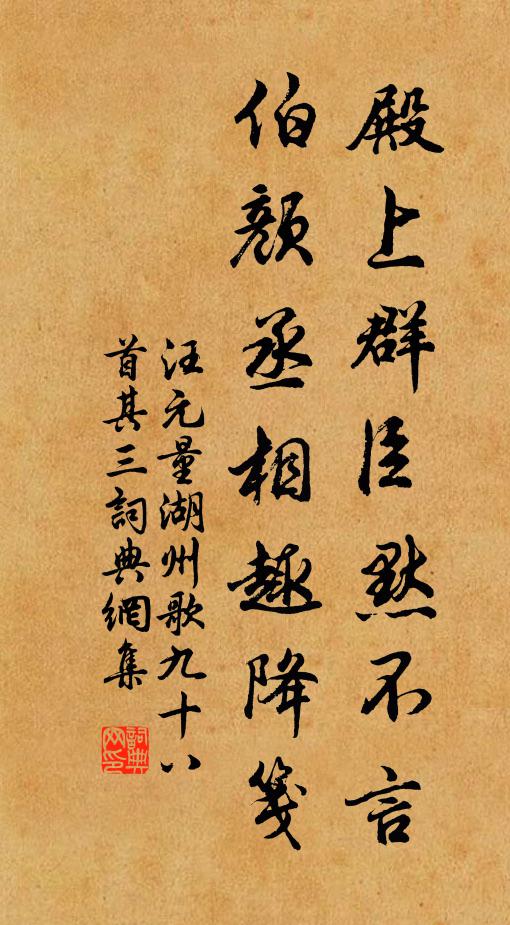 殿上群臣默不言
伯顏丞相趣降箋
汪元量湖州歌九十八
首其三詞典網集
詞典網印